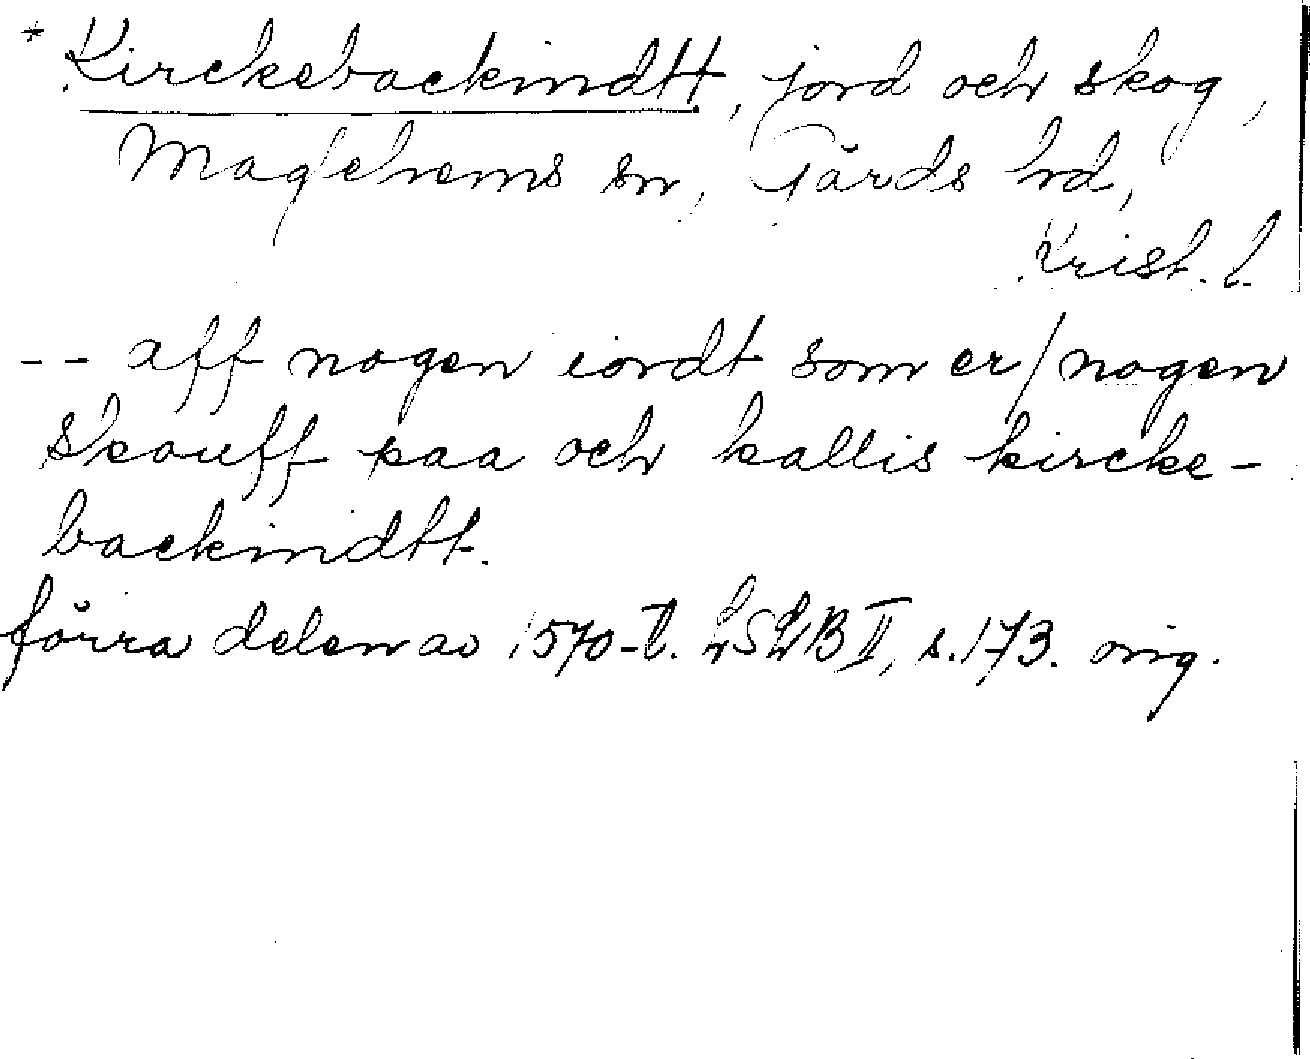 * Kirckebackindtt, jord och skog,
Maglehems sn, Gärds hd,
Krist. l.
-- aff nogen iordt som er / nogen
skouff paa och kallis kircke-
backindtt.
förra delen av 1570-t. LSLB II, s. 173. orig.